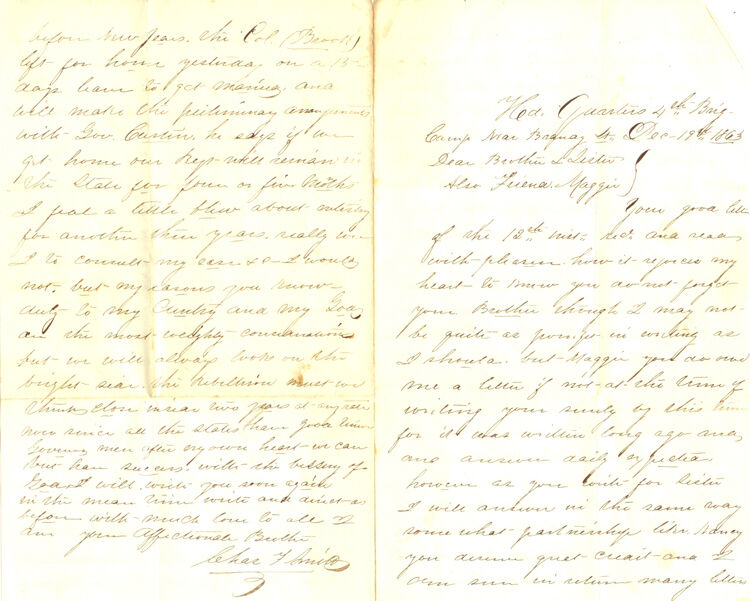 before New Years. the Col. (Brooks)
left for home yesterday on a 15
days leave to get married and
will make the preliminary arrangements
with Gov. Curtin. he says if we
get home our Regt will remain in
the State for four or five Months
I feel a little blew about
for another three years. really were
I to consult my ease &c I would
not. but my reasons you know
duty to my Country and my God
are the most weighty
but we will always look on the
bright side. the Rebellion must we
think close inside two years at any rate
now since all the states have good
Governing men after my own heart we can
but have success with the blessing of
God I will write you soon again
in the mean time write and direct as
before with much love to all I
am your Affectionate Brother
Chas F Smith
Hd. Quarters 4th Brig-
Camp Near Brandy St. Dec 19th 1863
Dear Brother & Sister
Also Friend Maggie
Your good letter
of the 12th inst. recd. and read
with pleasure. how it rejoices my
heart to know you do not forget
your Brother though I may not
be quite as prompt in writing as
I should. but Maggie you do owe
me a letter if not at the time of
writing your surely by this time
for it was written long ago and
and answer daily expected
however as you write for Sister
I will answer in the same way
some what partnership like. Nancy
you deserve great credit and I
am sure in return many letters